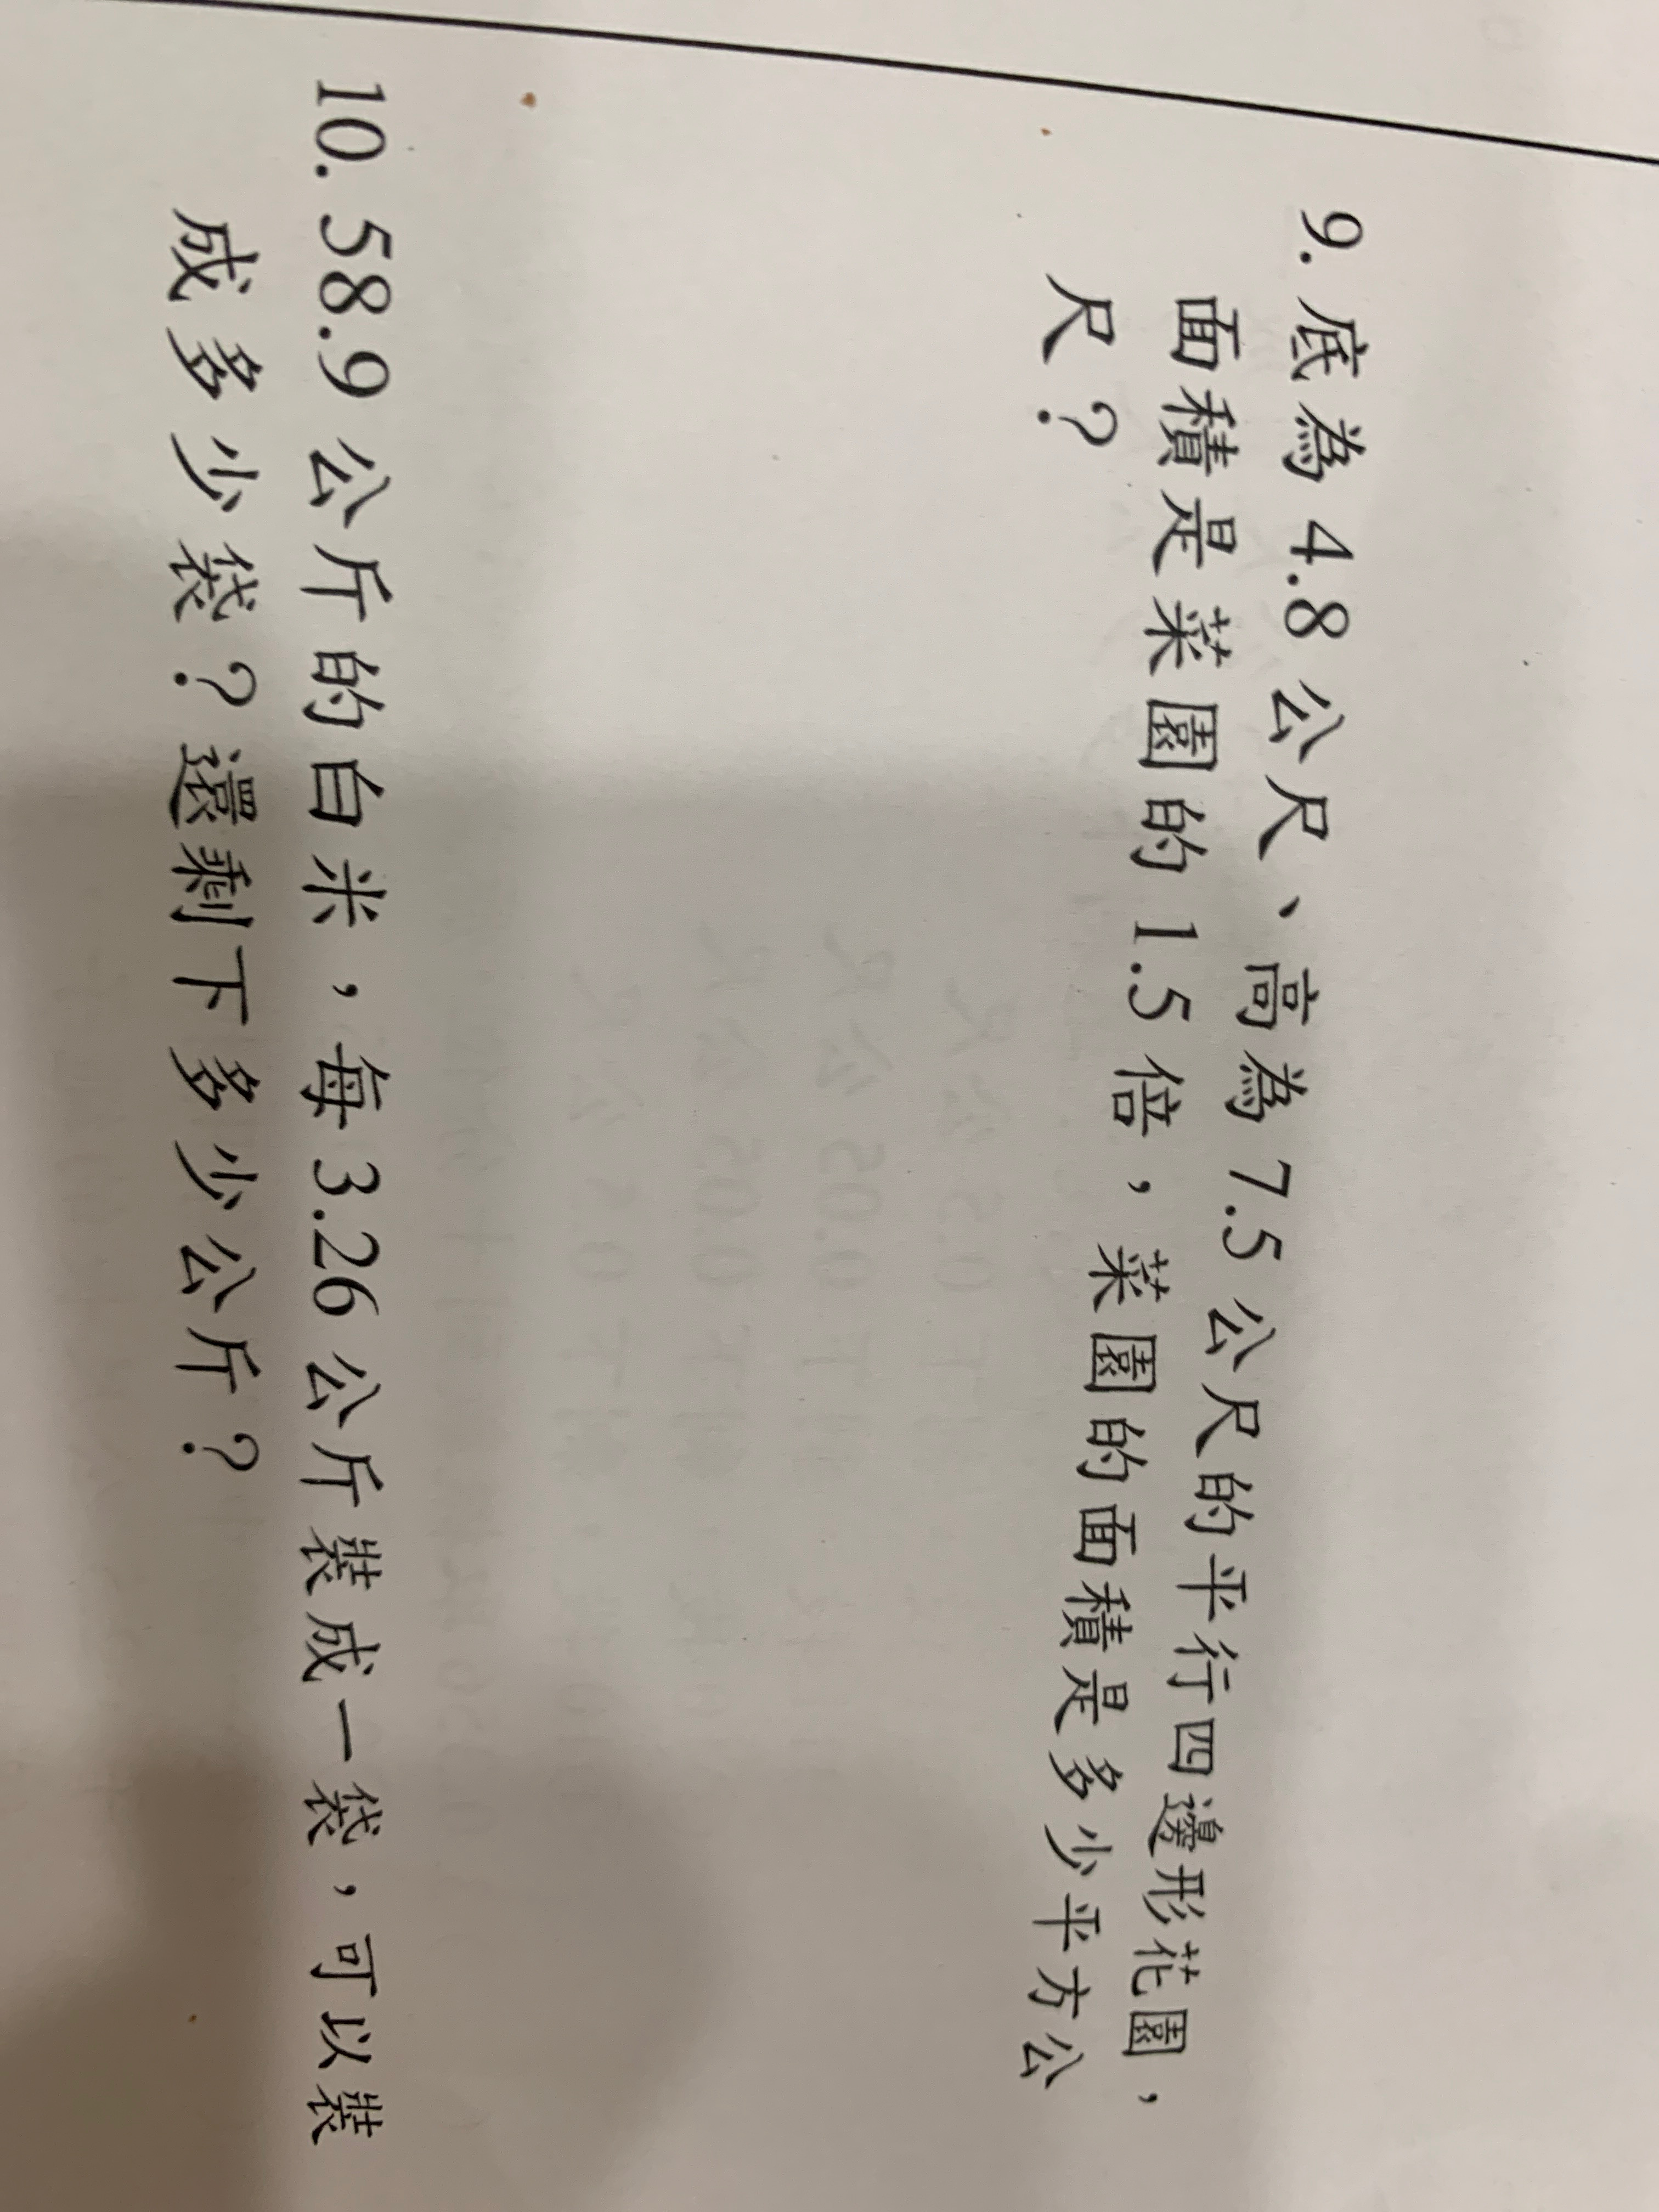 9. 底為 4.8 公尺、高為 7.5 公尺的平行四邊形花園，
面積是菜園的 1.5 倍，菜園的面積是多少平方公
尺？
10. 58.9 公斤的白米，每 3.26 公斤裝成一袋，可以裝
成多少袋？還剩下多少公斤？